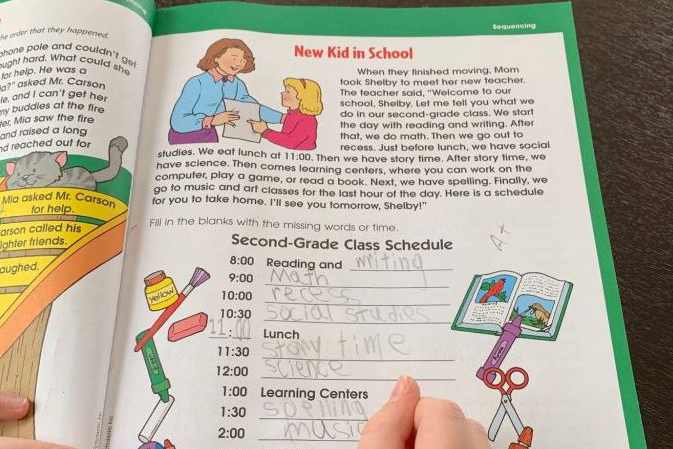 he order that they happened.
phone pole and couldn't get
ught hard. What could she
for help. He was a
a?" asked Mr. Carson
le, and I can't get her
my buddies at the fire
ter, Mia saw the fire
and raised a long
nd reached out for
Mia asked Mr. Carson
for help.
arson called his
ighter friends.
aughed.
Sequencing
New Kid in School
When they finished moving, Mom
took Shelby to meet her new teacher.
The teacher said, "Welcome to our
school, Shelby. Let me tell you what we
do in our second-grade class. We start
the day with reading and writing. After
that, we do math. Then we go out to
recess. Just before lunch, we have social
studies. We eat lunch at 11:00. Then we have story time. After story time, we
have science. Then comes learning centers, where you can work on the
computer, play a game, or read a book. Next, we have spelling. Finally, we
go to music and art classes for the last hour of the day. Here is a schedule
for you to take home. I'll see you tomorrow, Shelby!"
Fill in the blanks with the missing words or time.
Second-Grade Class Schedule
A+
8:00 Reading and writing
9:00 Math
10:00 recess
10:30 social studies
11:00 Lunch
11:30 story time
12:00 science
1:00 Learning Centers
1:30 spelling
2:00 music
yellow